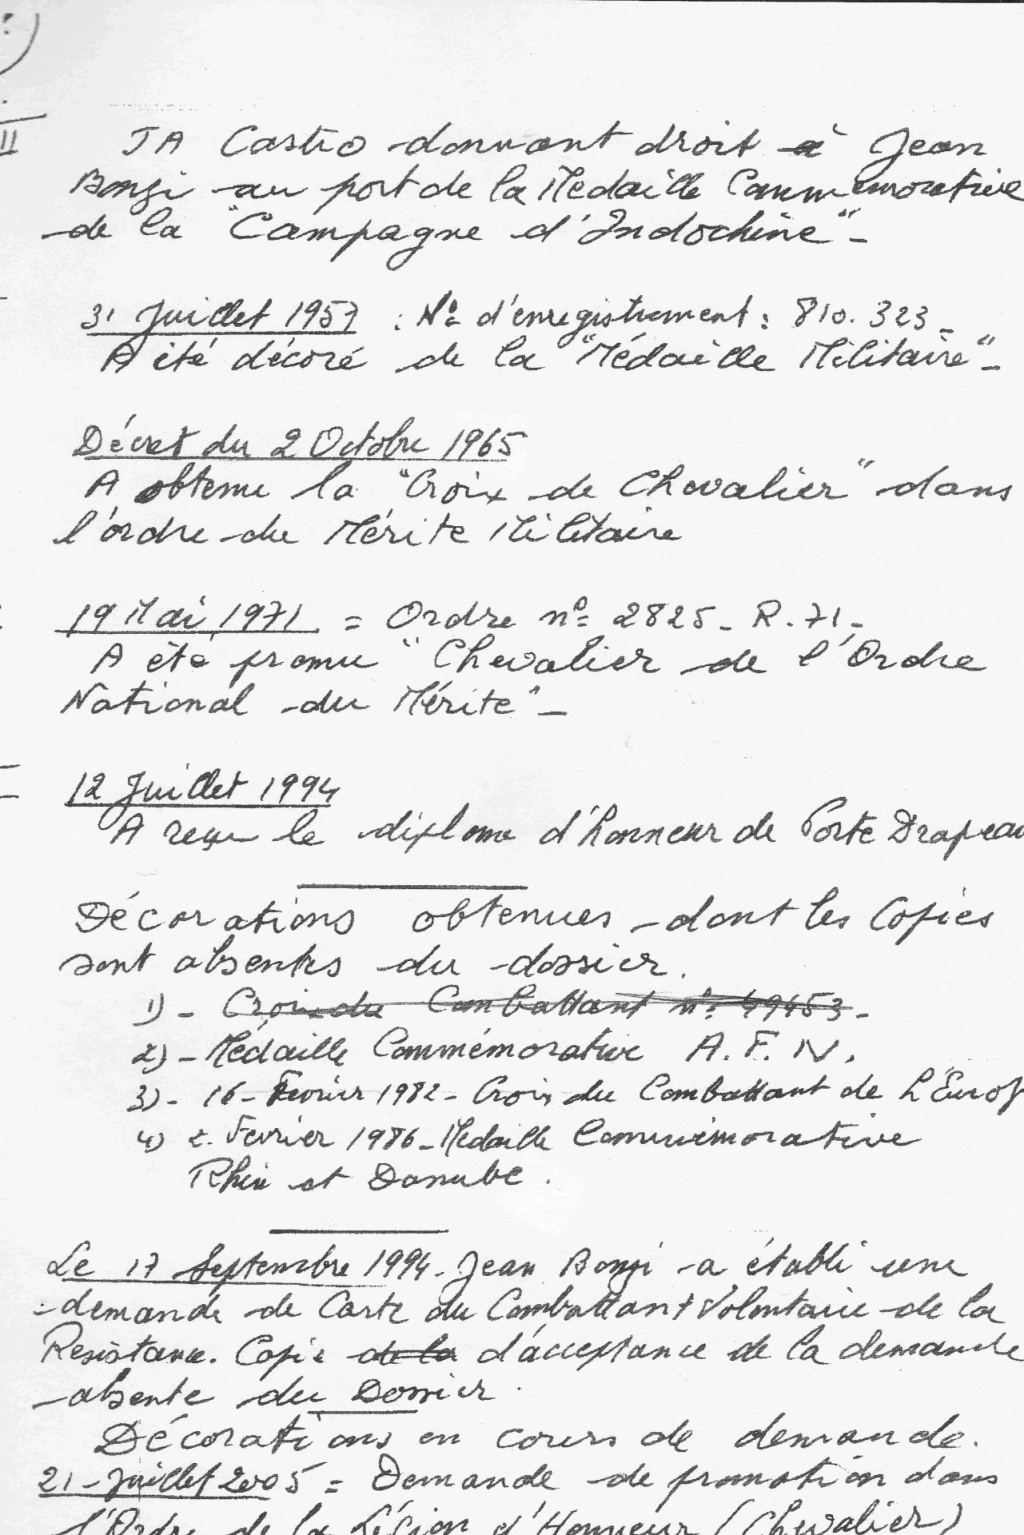 II
JA Castro donnant droit à Jean
Bongi au port de la Médaille Commémorative
de la "Campagne d'Indochine" -
31 Juillet 1957 : N° d'enregistrement : 810.323 -
A été décoré de la "Médaille Militaire" -
Décret du 2 Octobre 1965
A obtenu la "Croix de Chevalier" dans
l'ordre du Mérite Militaire
19 Mai 1971 = Ordre n° 2825 - R.71 -
A été promu "Chevalier de l'Ordre
National du Mérite" -
12 Juillet 1994
A reçu le diplome d'honneur de Porte Drapeau
Décorations obtenues dont les Copies
sont absentes du dossier.
1) - Croix du Combattant n° 49453 -
2) - Médaille Commémorative A.F.N.
3) - 16 - Fevrier 1982 - Croix du Combattant de L'Europ
4) 2. Fevrier 1986 - Medaille Commémorative
Rhin et Danube.
Le 17 Septembre 1994 - Jean Bongi a établi une
demande de Carte du Combattant Volontaire de la
Resistance. Copie de la d'acceptance de la demande
absente du Dossier.
Décorations en cours de demande.
21 - Juillet 2005 = Demande de promotion dans
l'Ordre de la Légion d'Honneur (Chevalier)